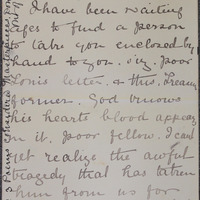 I have been waiting
to find a person
to take you enclosed by
hand to you. viz. Poor
letter. & this. Dreamy
former. God knows
his hearts blood appears
on it. Poor fellow. I cant
yet realize the awful
tragedy that has taken
him from us for